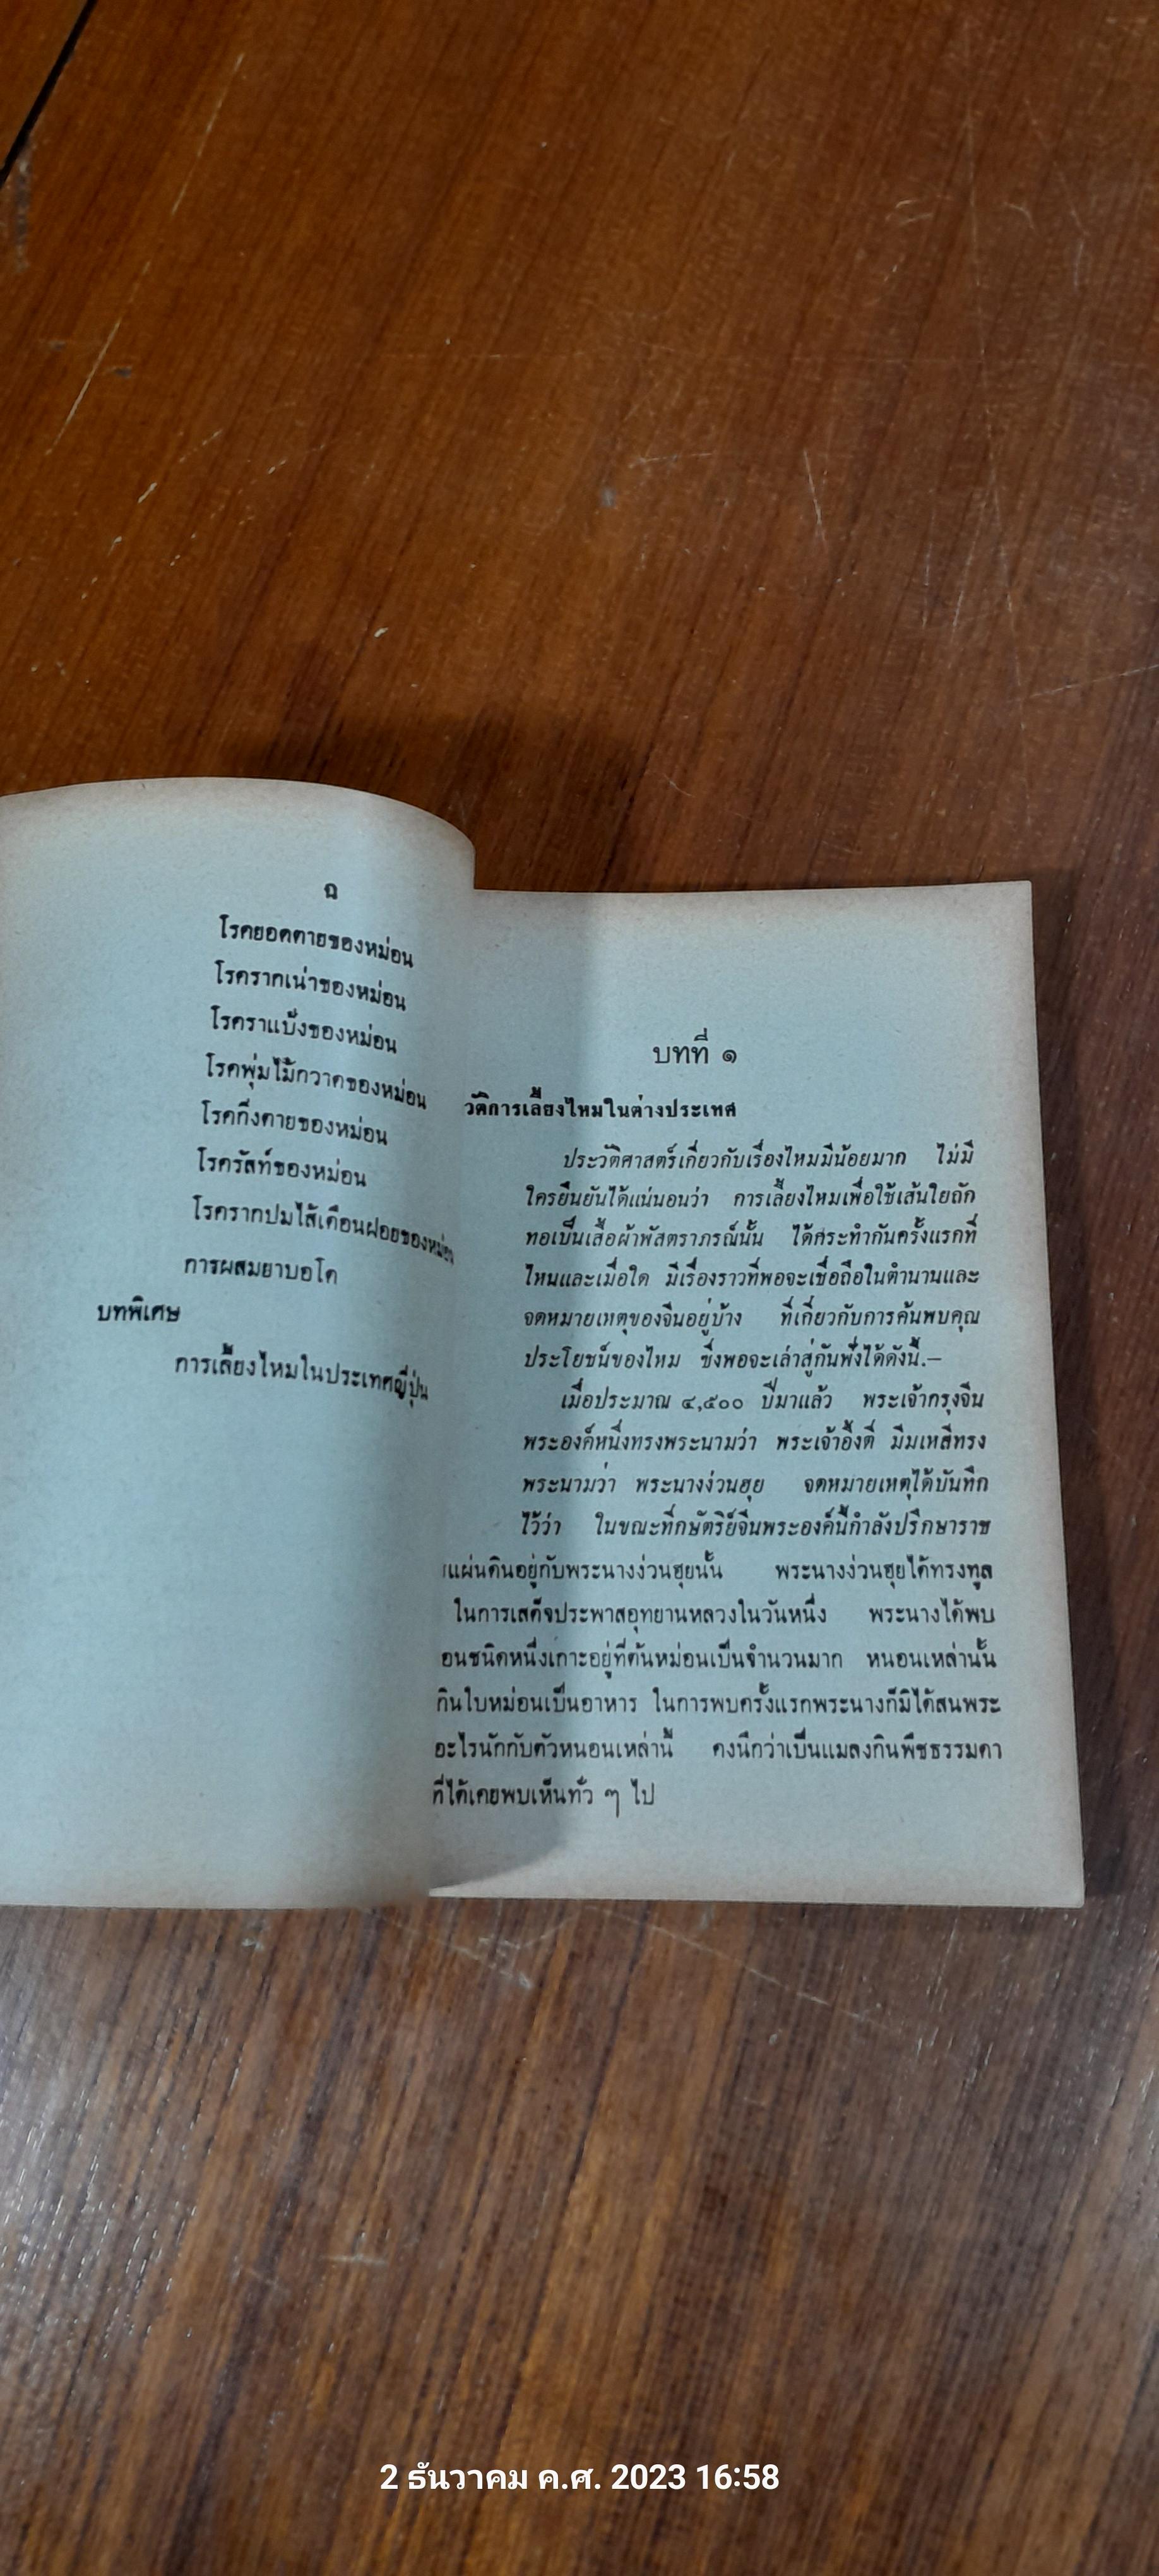 ฉ
โรคยอดตายของหม่อน
โรครากเน่าของหม่อน
โรคราแป้งของหม่อน
โรคพุ่มไม้กวาดของหม่อน
โรคกิ่งตายของหม่อน
โรครัสท์ของหม่อน
โรครากปมไส้เดือนฝอยของหม่อน
การผสมยาบอโด
บทพิเศษ
การเลี้ยงไหมในประเทศญี่ปุ่น
บทที่ ๑
วัติการเลี้ยงไหมในต่างประเทศ
ประวัติศาสตร์เกี่ยวกับเรื่องไหมมีน้อยมาก ไม่มี
ใครยืนยันได้แน่นอนว่า การเลี้ยงไหมเพื่อใช้เส้นใยถัก
ทอเป็นเสื้อผ้าพัสตราภรณ์นั้น ได้กระทำกันครั้งแรกที่
ไหนและเมื่อใด มีเรื่องราวที่พอจะเชื่อถือในตำนานและ
จดหมายเหตุของจีนอยู่บ้าง ที่เกี่ยวกับการค้นพบคุณ
ประโยชน์ของไหม ซึ่งพอจะเล่าสู่กันฟังได้ดังนี้.–
เมื่อประมาณ ๔,๕๐๐ ปีมาแล้ว พระเจ้ากรุงจีน
พระองค์หนึ่งทรงพระนามว่า พระเจ้าอึ้งตี่ มีมเหสีทรง
พระนามว่า พระนางง่วนฮุย จดหมายเหตุได้บันทึก
ไว้ว่า ในขณะที่กษัตริย์จีนพระองค์นี้กำลังปรึกษาราช
แผ่นดินอยู่กับพระนางง่วนฮุยนั้น พระนางง่วนฮุยได้ทรงทูล
ในการเสด็จประพาสอุทยานหลวงในวันหนึ่ง พระนางได้พบ
อนชนิดหนึ่งเกาะอยู่ที่ต้นหม่อนเป็นจำนวนมาก หนอนเหล่านั้น
กินใบหม่อนเป็นอาหาร ในการพบครั้งแรกพระนางก็มิได้สนพระ
อะไรนักกับตัวหนอนเหล่านี้ คงนึกว่าเป็นแมลงกินพืชธรรมดา
ที่ได้เคยพบเห็นทั่ว ๆ ไป
2 ธันวาคม ค.ศ. 2023 16:58